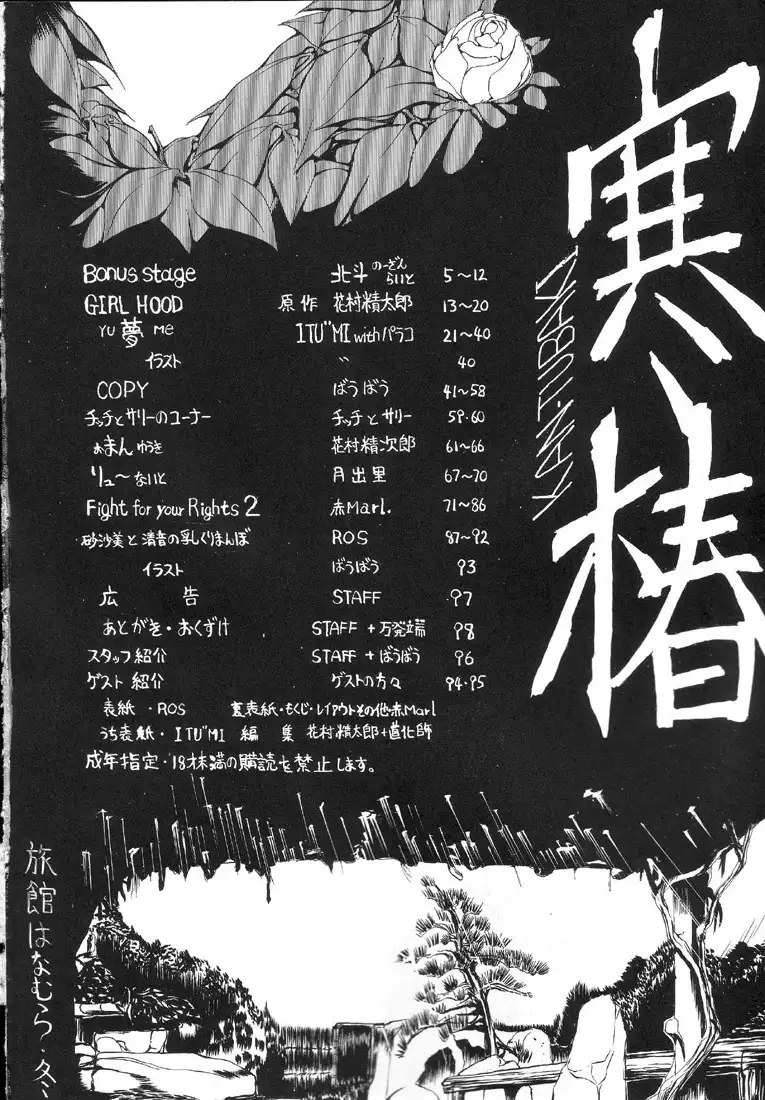 寒椿
KAN-TUBAKI
Bonus stage 北斗のーざんらいと 5〜12
GIRL HOOD 原作 花村精太郎 13〜20
YU 夢 Me ITU"MI with パラコ 21〜40
イラスト 〃 40
COPY ばうばう 41〜58
チッチとサリーのコーナー チッチとサリー 59・60
ぉまんゆうき 花村精次郎 61〜66
リュ〜ないと 月出里 67〜70
Fight for your Rights 2 赤Marl. 71〜86
砂沙美と清音の乳しくりまんぼ ROS 87〜92
イラスト ばうばう 93
広告 STAFF 97
あとがき・おくずけ STAFF+万発端 98
スタッフ紹介 STAFF+ばうばう 96
ゲスト紹介 ゲストの方々 94・95
表紙・ROS 裏表紙・もくじ・レイアウトその他赤Marl
うち表紙・ITU"MI 編集 花村精太郎+道化師
成年指定・18才未満の購読を禁止します。
旅館はなむら・冬